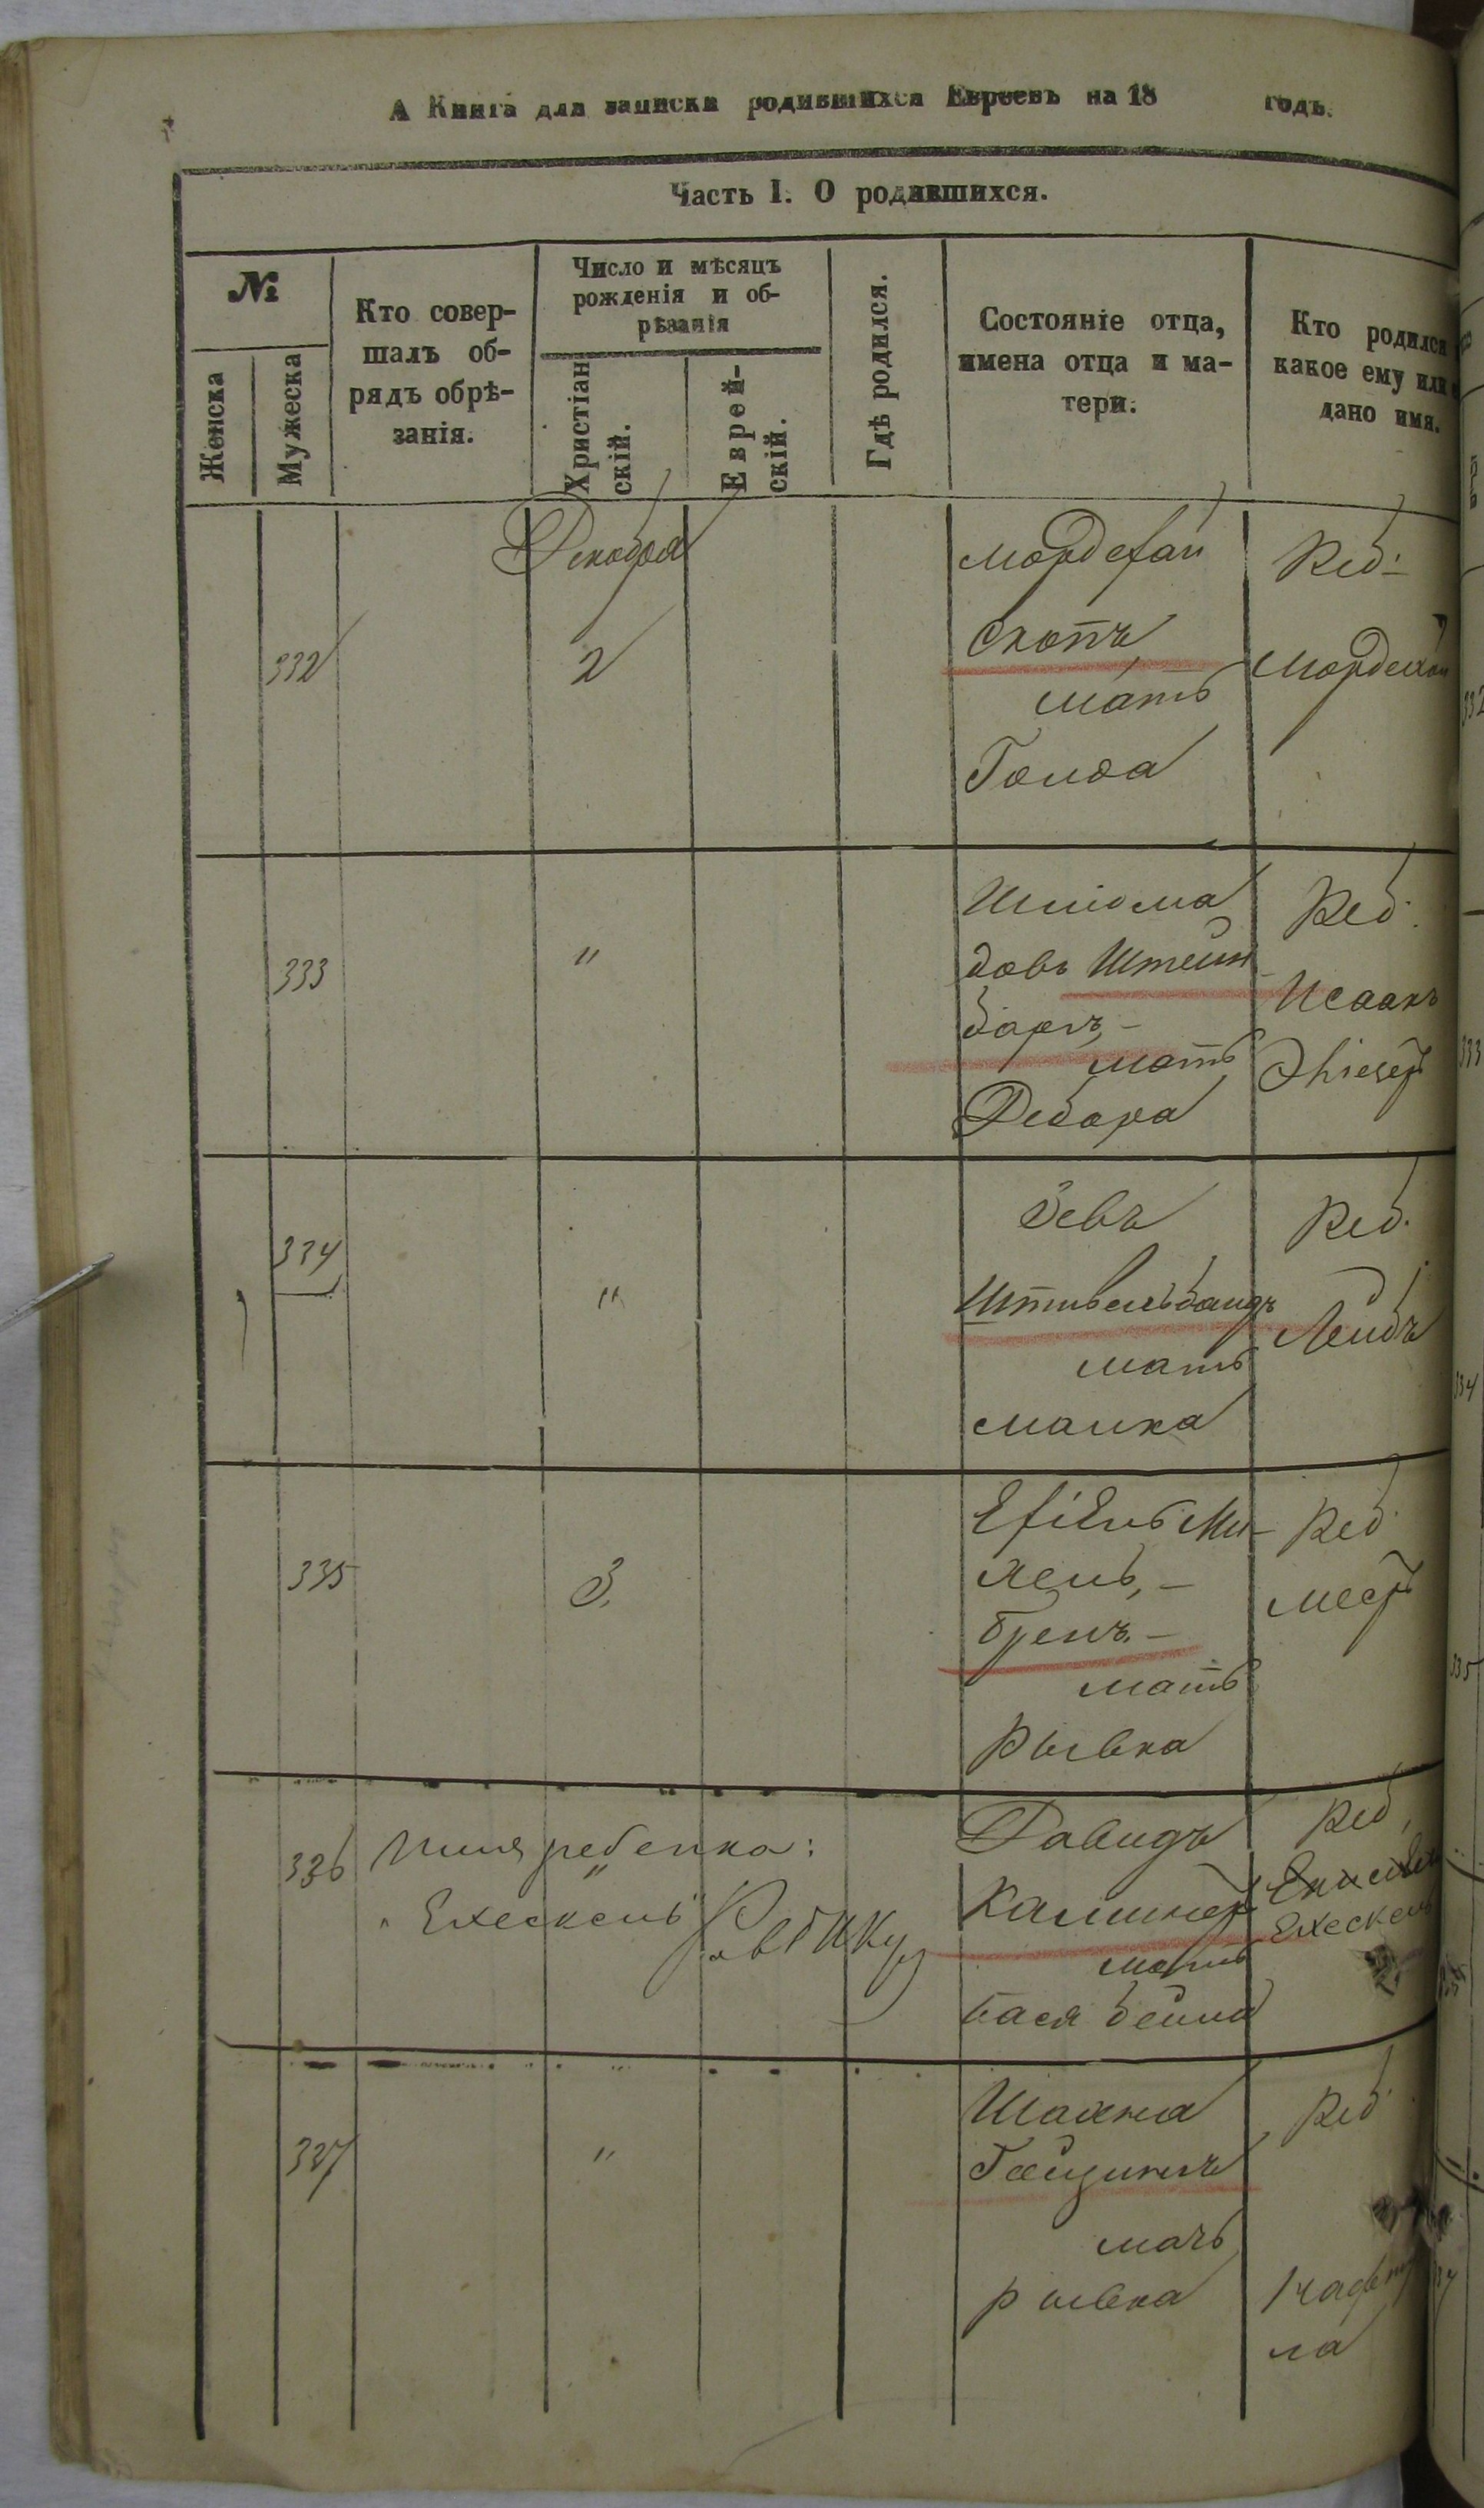 А Книга для записки родившихся Евреевъ на 18 годъ.
Часть I. О родившихся.
№
Женска
Мужеска
Кто совер-
шалъ об-
рядъ обрѣ-
занія.
Число и мѣсяцъ
рожденія и об-
рѣзанія
Христіан
скій.
Еврей-
скій.
Гдѣ родился.
Состояніе отца,
имена отца и ма-
тери.
Кто родился
какое ему или
дано имя.
332
Декабря
2
Мордехай
Скопъ
мать
Голда
Реб.
Мордехай
333
"
Шліома
довъ Штейн
баръ,-
мать
Дебора
Реб.
Исаакъ
334
"
Зевъ
Штивельбандъ
мать
Малка
Реб.
Лейбъ
335
3.
Ехіель Ми-
хель,-
Бренъ.-
мать
Рывка
Реб
Меер
336
Имя ребенка:
"Ехескель"
Давидъ
Калинер
мать
Бася Бейла
Реб,
Ехескель
337
"
Шахна
мать
Рывка
Реб
ла